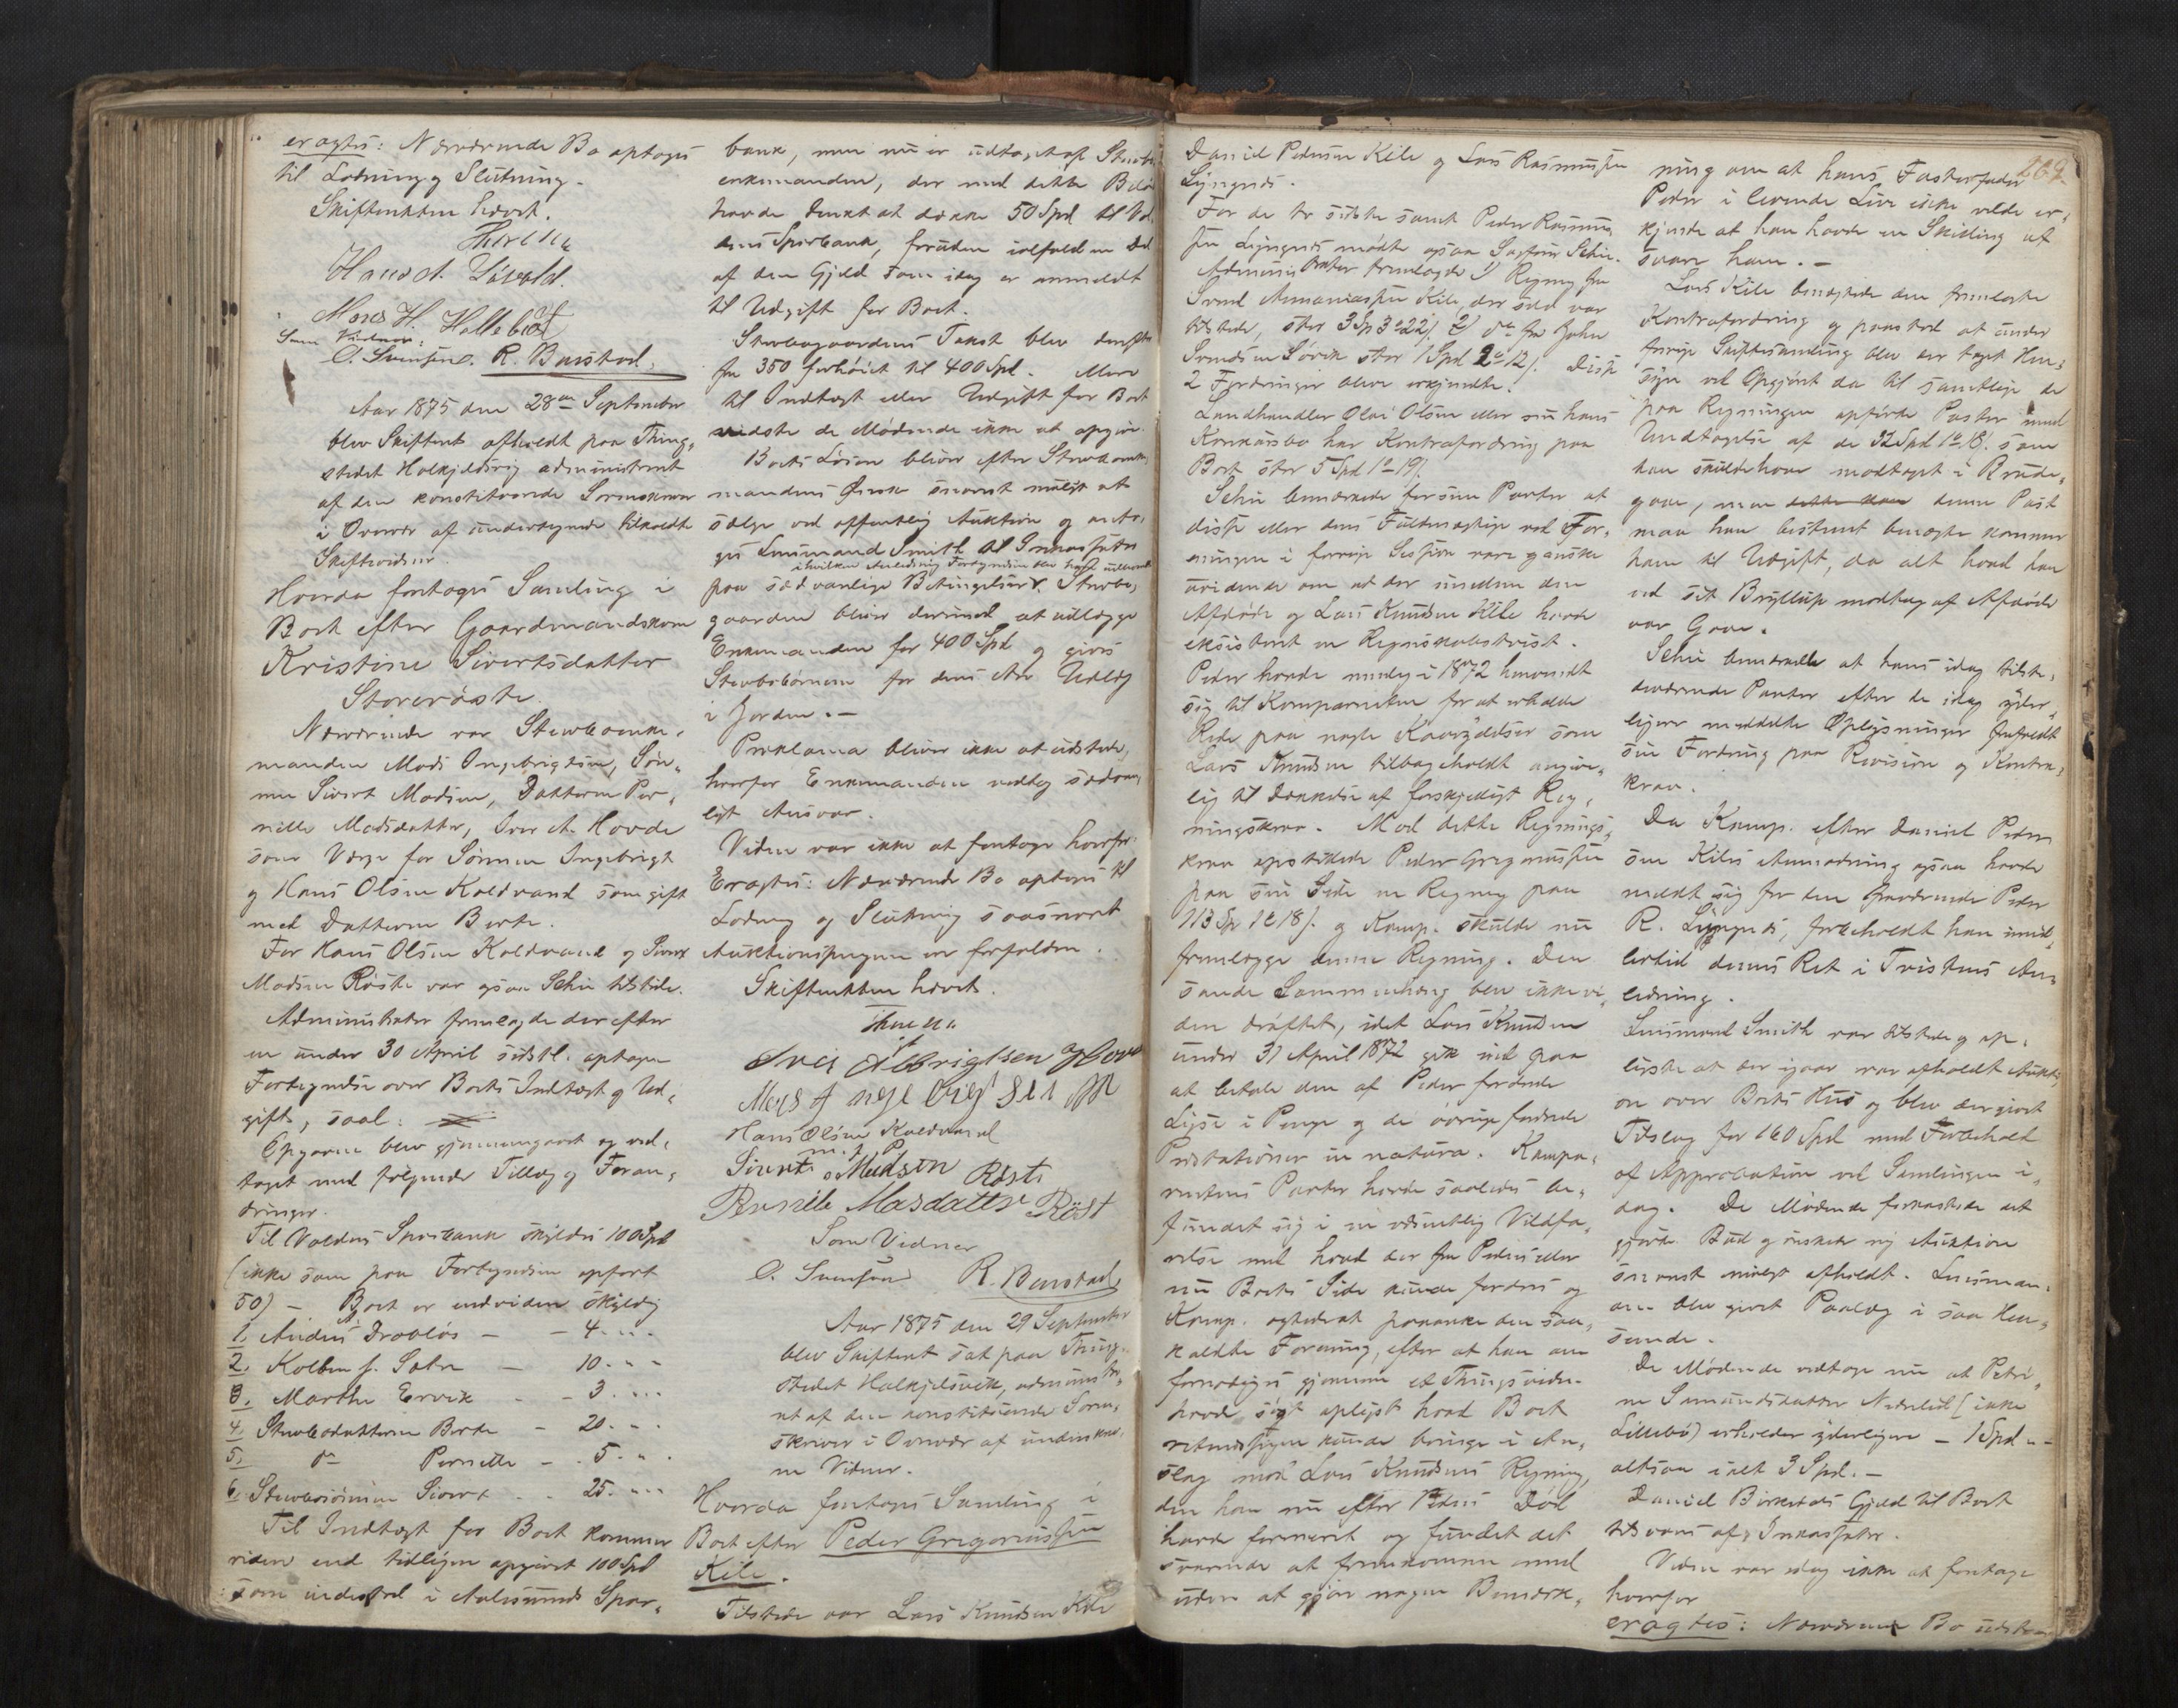 eragtes: Nærværende Bo optoges
til Lodning og Slutning.
Skifteretten hævet.
Hans A. Løvold.
Mons H. Hallebøst
Som Vidner:
O. Svensen. R. Barstad.
Aar 1875 den 28de September
blev Skifteret afholdt paa Thing-
stedet Holkjelsvig administreret
af den konstituerede Sorenskriver
i Overvær af undertegnede tilkaldte
Skiftevidner.
Hvorda foretoges Samling i
Boet efter Gaardmandskone
Kristine Sivertsdatter
Storerøste.
Nærværende var Stervboenke-
manden Mads Ingebrigtsen, Søn-
nen Sivert Madsen, Datteren Per-
nille Madsdatter, Iver A. Hovde
som Værge for Sønnen Ingebrigt
og Hans Olsen Koldvand som gift
med Datteren Berte.
For Hans Olsen Koldvand og Sivert
Madsen Røste var ogsaa Schie tilstede.
Administrator fremlagde derefter
en under 30 April sidstl. optagen
Fortegnelse over Boets Indtægt og Ud-
gift, saal:
Opgaven blev gjennemgaaet og ved-
taget med følgende Tillæg og Foran-
dringer.
Til Voldens Sparebank skyldes 100 Spd
(ikke som paa Fortegnelsen opført
50) – Boet er endvidere skyldig
1. Anders Drabløs – – 4. " -
2. Kolbein J. Sætre – 10. " -
3. Marthe Ervik – – 3. " "
4. Stervbodatteren Berte – 20. " -
5. do Pernille – . 5. " .
6. Stervbosønnen Sivert . . 25. " "
Til Indtægt for Boet kommer
videre end tidligere opgivet 100 Spd
som indestod i Aalesunds Spare-
bank, men nu er udtaget af Stervbo-
enkemanden, der med dette Beløb
havde tænkt at dække 50 Spd til Vol-
dens Sparebank, foruden ialfald en Del
af den Gjeld som idag er anmeldt
til Udgift for Boet.
Stervbogaardens Taxt blev derefter
fra 350 forhøiet til 400 Spd. Mere
til Indtægt eller Udgift for Boet
vidste de Mødende ikke at opgive.
Boets Løsøre bliver efter Stervboenke-
mandens Ønske snarest muligt at
sælge ved offentlig Auktion og anto-
ges Lensmand Smith til Inkassator
i hvilken Anledning Fortegnelsen blev ham udleveret
paa sædvanlige Betingelser. Stervbo-
gaarden bliver derimod at udlægge
Enkemanden for 400 Spd og gives
Stervbobørnene for deres Arv Udlæg
i Jorden. –
Proklama bliver ikke at udstede,
hvorfor Enkemanden vedtog sædvan-
ligt Ansvar.
Videre var ikke at foretage hvorfor:
Eragtes: Nærværende Bo optages til
Lodning og Slutning saasnart
Auktionspengene er forfaldne.
Skifteretten hævet.
Iver Albrigtsen Hovde
Mads Ingebrigtsen
Hans Olsen Koldvand
m. p. P.
Sivert Madsen Røste
Pernille Masdatter Røst
Som Vidner
O. Svensen R. Barstad
Aar 1875 den 29 September
blev Skifteret sat paa Thing-
stedet Holkjelsvik, administre-
ret af den konstituerede Soren-
skriver i Overvær af underskrev-
ne Vidner.
Hvorda foretoges Samling i
Boet efter Peder Gregoriussen
Kile.
Tilstede var Lars Knudsen Kile
269.
Daniel Pedersen Kile og Lars Rasmussen
Lyngnes.
For de to sidste samt Peder Rasmus-
sen Lyngnes mødte ogsaa Sagfører Schie.
Administrator fremlagde 1) Regning fra
Svend Ananiassen Kile, der selv var
tilstede, stor 3 Sp 3 o 22/. 2) do fra John
Svendsen Søvik stor 1 Spd 2 o 12/. Disse
2 Fordringer bleve erkjendte.
Landhandler Olai Olsen eller nu hans
Konkursbo har Kontrafordring paa
Boet stor 5 Spd 1 o 19/.
Schie bemærkede for sine Parter at
disse eller deres Fuldmægtige ved For-
eningen i forrige Session vare ganske
uvidende om at der imellem den
Afdøde og Lars Knudsen Kile havde
eksisteret en Regnskabstvist.
Peder havde nemlig i 1872 henvendt
sig til Komparenten for at erholde
Rede paa nogle Kaarydelser som
Lars Knudsen tilbageholdt angive-
lig til Dækkelse af forskjelligt Reg-
ningskrav. Mod dette Regnings-
krav opstillede Peder Gregoriussen
paa sin Side en Regning paa
113 Sp 1 o 18/. og Komp. skulde nu
fremlægge denne Regning. Den
sande Sammenhæng blev ikke vi-
dere drøftet, idet Lars Knudsen
under 3) April 1872 gik ind paa
at betale den af Peder fordrede
Lyse i Penge og de øvrige fordrede
Præstationer in natura. Kompa-
rentens Parter havde saaledes be-
fundet sig i en væsentlig Vildfa-
relse med hvad der fra Peders eller
nu Boets Side kunde fordres og
Komp. agtede at paaanke den saa-
kaldte Forening, efter at han om
fornødiges gjennem et Thingsvidne
havde søgt oplyst hvad Boet
retmæssigen kunde bringe i An-
slag mod Lars Knudsens Regning,
den han nu efter Peders Død
havde fornyet og fundet det
svarende at fremkomme med
uden at gjøre nogen Bemærk-
ning om at hans Fosterfader
Peder i levende Live ikke vilde er-
kjende at han havde en Skilling at
svare ham. –
Lars Kile benægtede den fremlagte
Kontrafordring og paastod at under
forrige Skiftesamling blev der taget Hen-
syn ved Opgjøret da til samtlige de
paa Regningen opførte Poster med
Undtagelse af de 32 Spd 1 o 18/. som
han skulde have modtaget i Brude-
gave, men denne Post
maa han bestemt benægte kommer
ham til Udgift, da alt hvad han
ved sit Bryllup modtog af Afdøde
var Gave.
Schie bemærkede at hans idag tilste-
deværende Parter efter de idag yder-
ligere meddelte Oplysninger frafaldt
sin Fordring paa Revision og Kontra-
krav.
Da Komp. efter Daniel Peder-
sen Kiles Anmodning ogsaa havde
meldt sig for den fraværende Peder
R. Lyngnes, forbeholdt han imid-
lertid dennes Ret i Tvistens An-
ledning.
Lensmand Smith var tilstede og op-
lyste at der igaar var afholdt Aukti-
on over Boets Hus og blev der givet
Tilslag for 160 Spd med Forbehold
af Approbation ved Samlingen i-
dag. De Mødende forkastede det
gjorte Bud og ønskede ny Auktion
snarest muligt afholdt. Lensman-
den blev givet Paalæg i saa Hen-
seende.
De Mødende vedtoge nu at Petri-
ne Samundsdatter Nedrelid (ikke
Lillebø) erholder yderligere – 1 Spd –
altsaa i alt 3 Spd. –
Daniel Birkelds Gjeld til Boet
tilsvares af Inkassator.
Videre var idag ikke at foretage
hvorfor
eragtes: Nærværende Bo